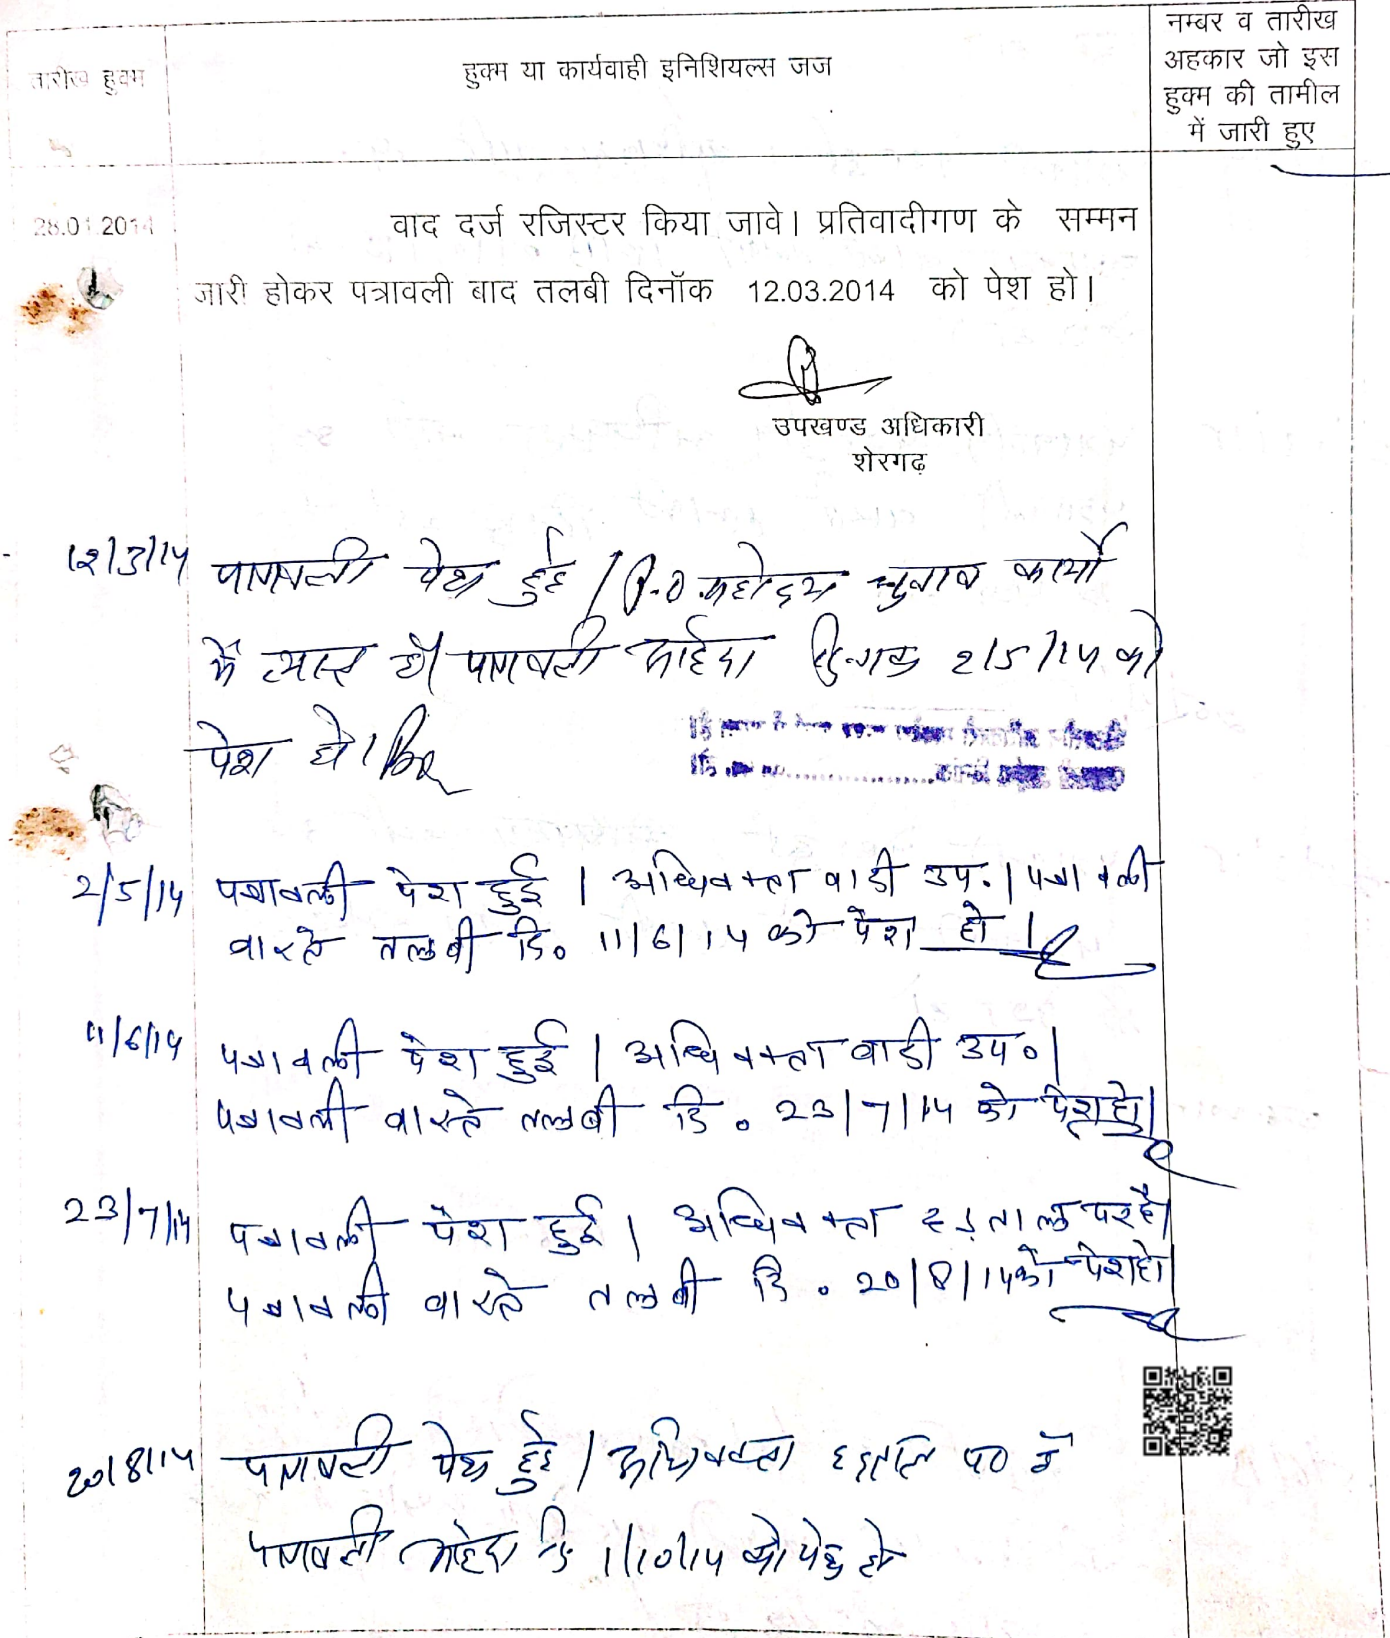 तारीख हुक्म
हुक्म या कार्यवाही इनिशियल्स जज
नम्बर व तारीख
अहकार जो इस
हुक्म की तामील
में जारी हुए
28.01.2014
वाद दर्ज रजिस्टर किया जावे। प्रतिवादीगण के सम्मन
जारी होकर पत्रावली बाद तलबी दिनॉक 12.03.2014 को पेश हो।
उपखण्ड अधिकारी
शेरगढ़
12/3/14 पत्रावली पेश हुई / P.O महोदय चुनाव कार्यो
में व्यस्त है। पत्रावली आईंदा दिनांक 2/5/14 को
पेश हो।
2/5/14 पत्रावली पेश हुई । अधिवक्ता वादी उप. । पत्रावली
वास्ते तलबी दि० 11/6/14 को पेश हो ।
11/6/14 पत्रावली पेश हुई । अधिवक्ता वादी उप० ।
पत्रावली वास्ते तलबी दि. 23/7/14 को पेश हो।
23/7/14 पत्रावली पेश हुई । अधिवक्ता हड़ताल पर है।
पत्रावली वास्ते तलबी दि. 20/8/14 को पेश हो।
20/8/14 पत्रावली पेश हुई / अधिवक्ता हड़ताल पर है
पत्रावली आईंदा दि 1/10/14 को पेश हो